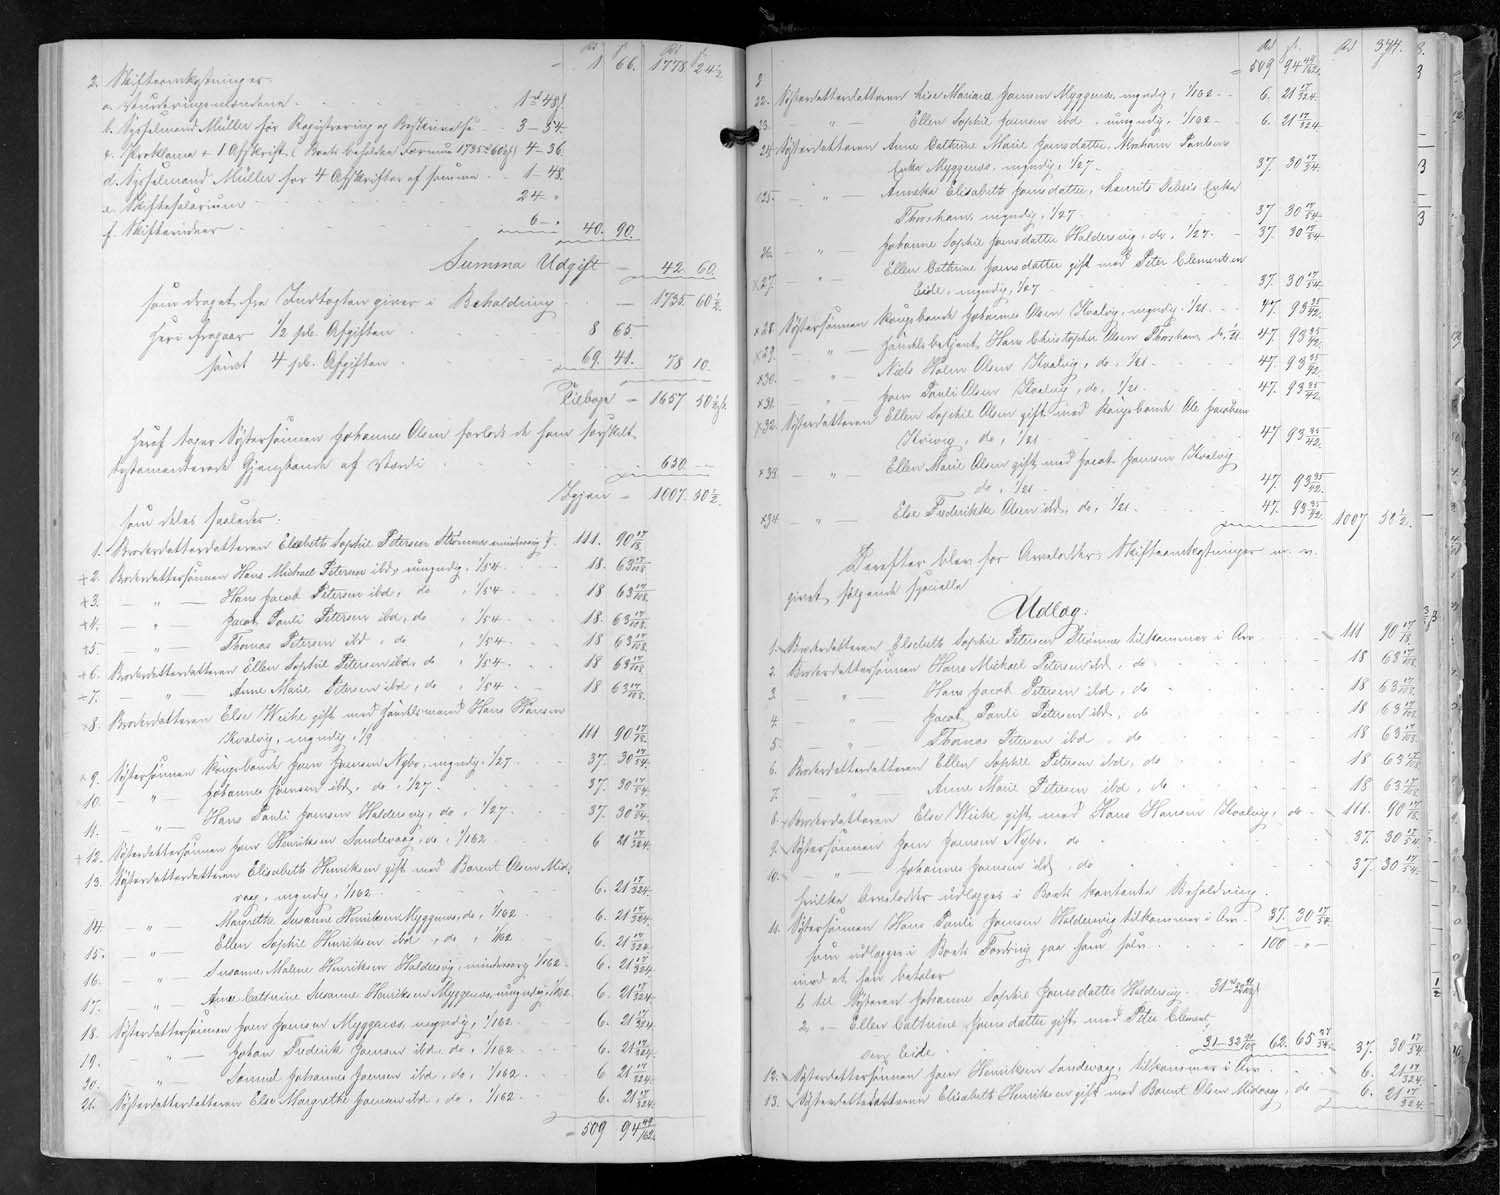 Rd ſ. Rd ſ.
2. Skifteomkostninger = 1 66. 1778 24½.
a. Vurderingsmændene 1 rd 48 ſ
b. Sysselmand Müller for Registrering og Besigtelse 3 – 54.
c. Proklama + 1 Afskrift (Boets beholdne Formue 1735 rd 60 ſ) 4 – 36.
d. Sysselmand Müller for 4 Afskrifter af samme 1 – 48.
e. Skiftesalarium 24 "
f. Skifteridser 6 – " 40. 90.
Summa Udgift – 42. 60.
som draget fra Indtægten giver i Beholdning – 1735. 60½.
heri fragaar ½ pCt. Afgiften 8 65
samt 4 pCt. Afgiften 69. 41. 78 10.
Tilbage – 1657 50½ ſ.
heraf tager Søstersønnen Johannes Olsen forlods de ham særskilt
testamenterede Gjenstande af Værdi 650. –
Igjen – 1007. 50½.
som deles saaledes:
1. Broderdatterdatteren Elsebeth Sophie Petersen Strømnæs mindreaarig 1/9. 111. 90 17/18.
+2. Broderdattersønnen Hans Michael Petersen ibd, umyndig, 1/54 18. 63 17/108.
+3. – " – Hans Jacob Petersen ibd, do, 1/54 18 63 17/108.
+4. – " – Jacob Pauli Petersen ibd, do, 1/54 18 63 17/108.
+5 – " – Thomas Petersen ibd, do, 1/54 18 63 17/108
+6. Broderdatterdatteren Ellen Sophie Petersen ibd, do, 1/54 18 63 17/108
+7. – " – Anne Marie Petersen ibd, do, 1/54 18 63 17/108.
×8. Broderdatteren Else Weihe gift med Handelsmand Hans Hansen
Kvalvig, myndig, 1/9 111 90 17/18.
×9. Søstersønnen Kongsbonde Joen Joensen Nybo, myndig, 1/27 37. 30 17/54
10. – " – Johannes Joensen ibd, do, 1/27 37. 30 17/54
11. – " – Hans Pauli Joensen Haldersvig, do, 1/27 37. 30 17/54.
+12. Søsterdattersønnen Joen Henriksen Sandevaag, do, 1/162 6 21 17/324.
13. Søsterdatterdatteren Elisabeth Henriksen gift med Barent Olsen Mid-
vaag, myndig, 1/162 6. 21 17/324
14. – " – Margrethe Susanne Henriksen Myggenæs, do, 1/162 6. 21 17/324
15. – " – Ellen Sophie Henriksen ibd, do, 1/162 6. 21 17/324
16. – " – Susanne Malene Henriksen Haldersvig, mindreaarig 1/162 6. 21 17/324
17. – " – Anne Cathrine Susanne Henriksen Myggenæs, umyndig, 1/162 6. 21 17/324.
18. Søsterdattersønnen Joen Joensen Myggenæs, myndig, 1/162 6. 21 17/324
19. – " – Johan Frederik Joensen ibd, do, 1/162 6. 21 17/324
20. – " – Samuel Johannes Joensen ibd, do, 1/162 6 21 17/324
21. Søsterdatterdatteren Else Margrethe Joensen ibd, do, 1/162 6. 21 17/324.
= 509 94 49/162.
Rd ſ. Rd 377.
= 509 94 49/162.
22. Søsterdatterdatteren Lise Mariane Joensen Myggenæs, myndig, 1/162 6. 21 17/324.
23. – " – Ellen Sophie Joensen ibd, umyndig, 1/162 6. 21 17/324.
24. Søsterdatteren Anne Cathrine Marie Joensdatter, Abraham Poulsens
Enke Myggenæs, myndig, 1/27 37. 30 17/54.
×25. – " – Anneke Elisabeth Joensdatter, Enke
Thorshavn, myndig, 1/27 37 30 17/54
26. – " – Johanne Sophie Joensdatter Haldersvig, do, 1/27 37. 30 17/54
×27. – " – Ellen Cathrine Joensdatter gift med Peter Clementsen
Eide, myndig, 1/27 37. 30 17/54.
×28. Søstersønnen Kongsbonde Johannes Olsen Kvalvig, myndig, 1/21 47. 93 35/42.
×29. – " – Handelsbetjent Hans Christopher Olsen Thorshavn, do, 1/21. 47. 93 35/42.
×30. – " – Niels Holm Olsen Kvalvig, do, 1/21 47. 93 35/42.
×31. – " – Joen Pauli Olsen Kvalvig, do, 1/21 47. 93 35/42.
×32. Søsterdatteren Ellen Sophie Olsen gift med Kongsbonde Ole Jacobsen
Kvivig, do, 1/21 47 93 35/42.
×33. – " – Ellen Marie Olsen gift med Jacob Joensen Kvalvig
do, 1/21 47. 93 35/42.
×34. – " – Else Frederikke Olsen ibd, do, 1/21 47. 93 35/42. 1007 50½.
Derefter blev for Arvelodder, Skifteomkostninger m. v.
givet følgende specielle
Udlæg:
1. Broderdatterdatteren Elsebeth Sophie Petersen Strømnæs tilkommer i Arv 111 90 17/18.
2. Broderdattersønnen Hans Michael Petersen ibd, do 18 63 17/108.
3. – " – Hans Jacob Petersen ibd, do 18 63 17/108.
4. – " – Jacob Pauli Petersen ibd, do 18 63 17/108.
5. – " – Thomas Petersen ibd, do 18 63 17/108.
6. Broderdatterdatteren Ellen Sophie Petersen ibd, do 18 63 17/108
7. – " – Anne Marie Petersen ibd, do 18 63 17/108.
8. Broderdatteren Else Weihe gift med Hans Hansen Kvalvig, do 111. 90 17/18.
9. Søstersønnen Joen Joensen Nybo, do 37. 30 17/54
10. – " – Johannes Joensen ibd, do 37. 30 17/54
hvilke Arvelodder udlægges i Boets kontante Beholdning.
11. Søstersønnen Hans Pauli Joensen Haldersvig tilkommer i Arv 37. 30 17/54
som udlægges i Boets Fordring paa ham selv 100 – " –
mod at han betaler
1. til Søsteren Johanne Sophie Joensdatter Haldersvig 31 rd
2. " – Ellen Cathrine Joensdatter gift med Peter Clement-
sen Eide 31 – 62. 65 37/54 37. 30 17/54
12. Søsterdattersønnen Joen Henriksen Sandevaag, tilkommer i Arv 6. 21 17/324
13. Søsterdatterdatteren Elisabeth Henriksen gift med Barent Olsen Midvaag, do 6. 21 17/324.